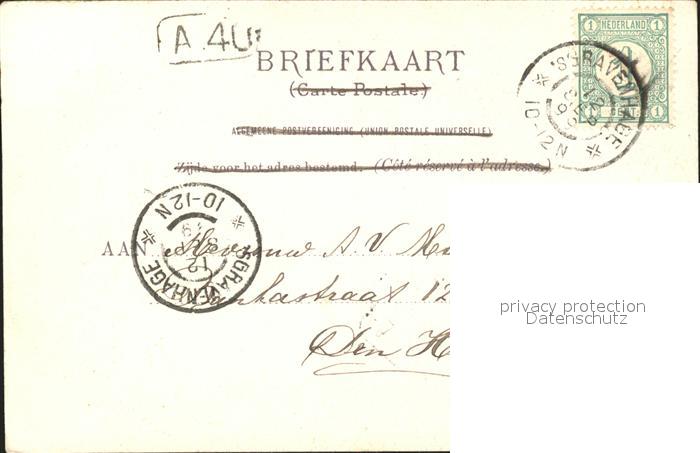 A 4U
BRIEFKAART
(Carte Postale)
ALGEMEENE POSTVEREENIGING (UNION POSTALE UNIVERSELLE)
Zijde voor het adres bestemd. (Côté réservé à l'adresse.)
1 NEDERLAND 1
1 CENT 1
'SGRAVENHAGE
10-12N
'SGRAVENHAGE
12
10-12N
AAN Mevrouw A. V.
straat 12
Den H
privacy protection
Datenschutz